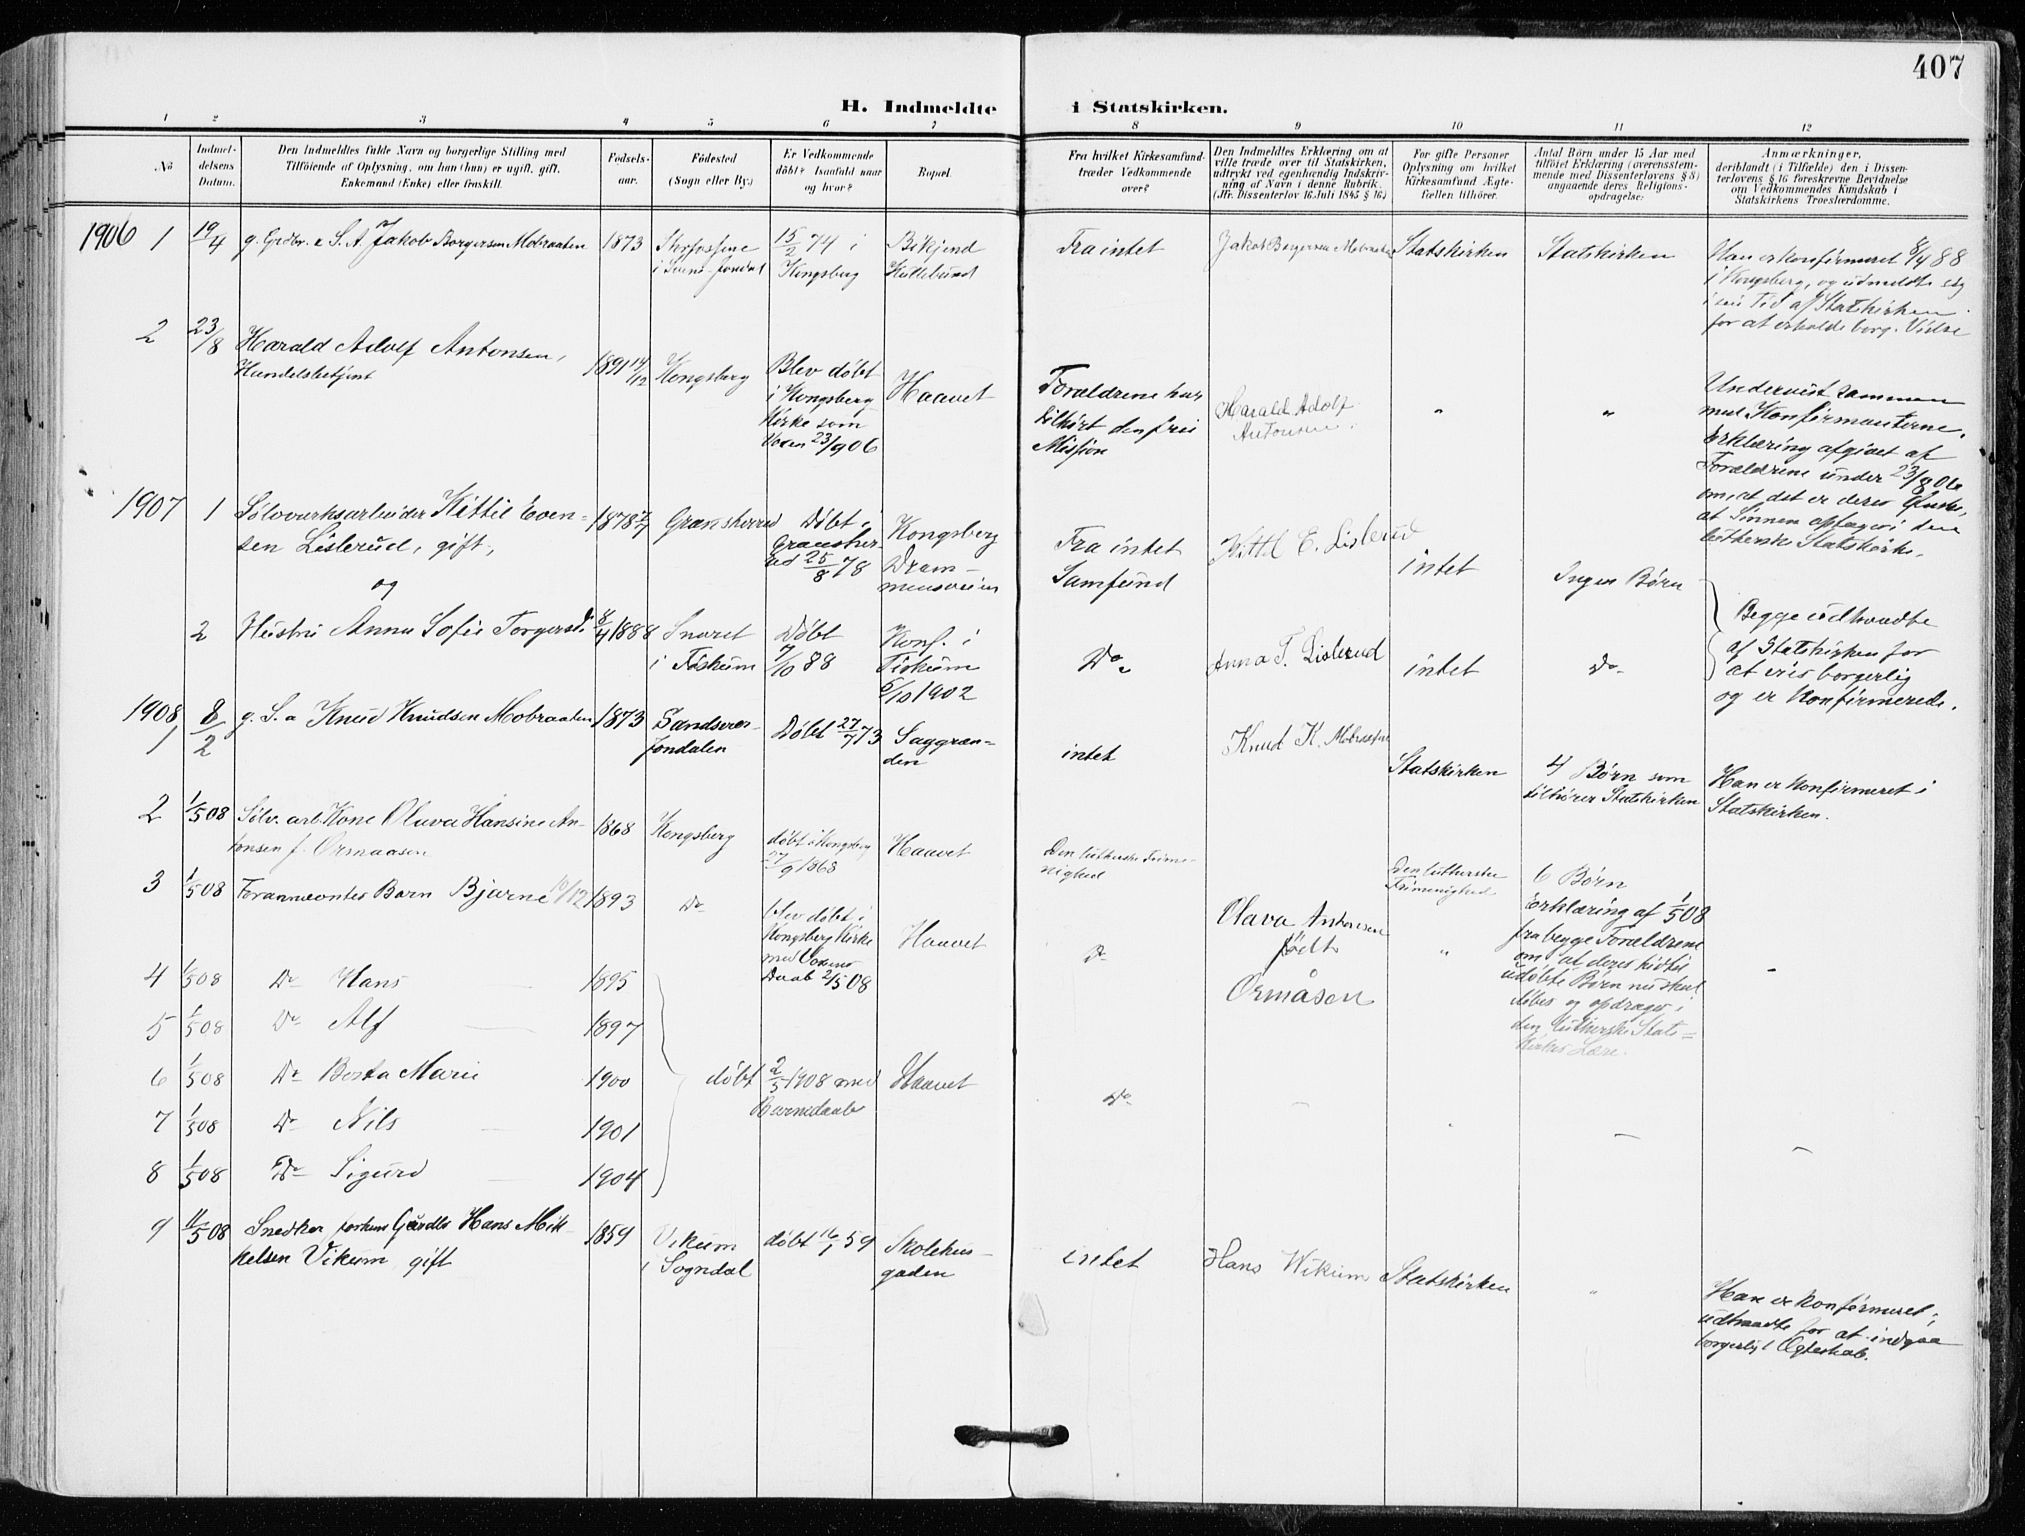 407
H. Indmeldte i Statskirken.
1 2 3 4 5 6 7 8 9 10 11 12
No
Indmeldelsens Datum.
Den Indmeldtes fulde Navn og borgerlige Stilling med
Tilföiende af Oplysning, om han (hun) er ugift, gift,
Enkemand (Enke) eller fraskilt.
Fødselsaar.
Födested
(Sogn eller By.)
Er Vedkommende
döbt? Isaafald naar
og hvor?
Bopæl.
Fra hvilket Kirkesamfund
træder Vedkommende
over?
Den Indmeldtes Erklæring om at
ville træde over til Statskirken,
udtrykt ved egenhændig Indskrivning
af Navn i denne Rubrik.
(Jfr. Dissenterlov 16 Juli 1845 § 16.)
For gifte Personer
Oplysning om hvilket
Kirkesamfund Ægtefællen
tilhörer.
Antal Börn under 15 Aar med
tilföiet Erklæring (overensstemmende
med Dissenterlovens § 8)
angaaende deres Religionsopdragelse:
Anmærkninger,
deriblandt (i Tilfælde) den i Dissenterlovens
§ 16 foreskrevne Bevidnelse
om Vedkommendes Kundskab i
Statskirkens Troeslærdomme.
1906 1 19/4 g. S. A. Jakob Borgersen Mobraaten 1873
15/2 74 i
Kongsberg
Fra intet
Jakob Borgersen Mobraaten
Statskirken
Statskirken
Han er konfirmeret 8/4 88
i Kongsberg, og udmeldte sig
i sin tid af Statskirken
for at erholde borg. Vielse
2 23/8 Harald Adolf Antonsen,
Handelsbetjent
1891 14/12
Kongsberg
Blev døbt
i Kongsberg
Kirke som
Voxen 23/9 06
Haavet
Forældrene har
tilhørt den frie
Mission
Harald Adolf
Antonsen.
"
"
Undervist sammen
med Konfirmanterne.
Erklæring afgivet af
Forældrene under 23/8 06
om, at det er deres Ønske,
at Sønnen optages i den
lutherske Statskirke.
1907 1 Sølvverksarbeider Kittil Evensen
Lislerud, gift,
og
1878 7/7
Gransherred
Døbt i
Gransherred
25/8 78
Kongsberg
Drammensveien
Fra intet
Samfund
Kittil E. Lislerud
intet
Ingen Børn
2 Hustru Anna Sofie Torgersd. 8/4 1888
Snaret
i Fiskum
Døbt
7/10 88
Konf. i
Fiskum
5/10 1902
Do
Anna T. Lislerud
intet
Do
Begge udtraadte
af Statskirken for
at vies borgerlig
og er konfirmerede.
1908 1 8/2 g. S. a Knud Knudsen Mobraaten 1873
Sandsver
Jondalen
Døbt 27/7 73
Saggrenden
intet
Knud K. Mobraaten
Statskirken
4 Børn som
tilhører Statskirken
Han er konfirmeret i
Statskirken.
2 1/5 08 Sølv. arb. Kone Olava Hansine Antonsen
f. Ormaasen
1868
Kongsberg
døbt i Kongsberg
27/9 1868
Haavet
Den lutherske Frimenighed
Den lutherske
Frimenighed
6 Børn
Erklæring af 1/5 08
fra begge Forældrene
om, at deres hidtil
udøbte Børn nu skal
døbes og opdrages i
den lutherske Statskirkes
Lære.
3 1/5 08 Forannævntes Barn Bjarne 10/12 1893
Do
blev døbt i
Kongsberg Kirke
med Voxens
Daab 2/5 08
Haavet
Do
Olava Antonsen
født
Ormåsen
"
4 1/5 08 Do Hans 1895
5 1/5 08 Do Alf 1897
6 1/5 08 Do Berta Marie 1900
døbt 2/5 1908 med
Barnedaab
Haavet
Do
7 1/5 08 Do Nils 1901
8 1/5 08 Do Sigurd 1904
9 11/5 08 Snedker, Hans Mikkelsen
Vikum gift
1859
Vikum
i Sogndal
døbt 16/1 59
Skolehusgaden
intet
Hans Wikum
Statskirken
"
Han er konfirmeret;
udtraadte for at indgaa
borgerligt Ægteskab.